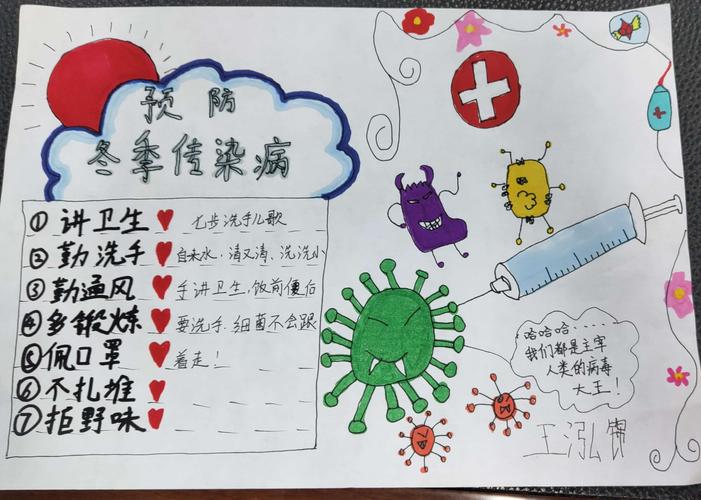 预防
冬季传染病
①讲卫生 七步洗手儿歌
②勤洗手 自来水.清又清、洗洗小
③勤通风 手讲卫生.饭前便后
④多锻炼 要洗手.细菌不会跟
⑤佩口罩 着走！
⑥不扎堆
⑦拒野味
哈哈哈......
我们都是主宰
人类的病毒
大王！
王泓